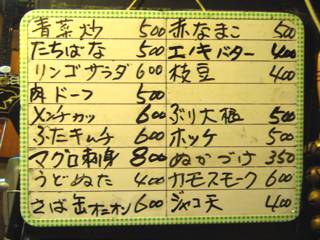 青菜炒 500
たちばな 500
リンゴサラダ 600
肉ドーフ 500
メンチカツ 600
ぶたキムチ 600
マグロ刺身 800
うどぬた 400
さば缶オニオン 600
赤なまこ 500
エノキバター 400
枝豆 400
ぶり大根 500
ホッケ 500
ぬかづけ 350
カモスモーク 600
ジャコ天 400